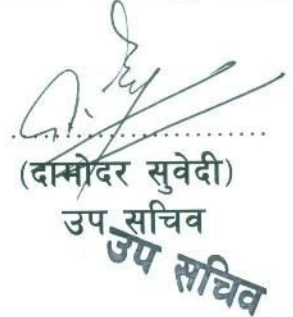 (दामोदर सुवेदी)
उप सचिव
उप सचिव